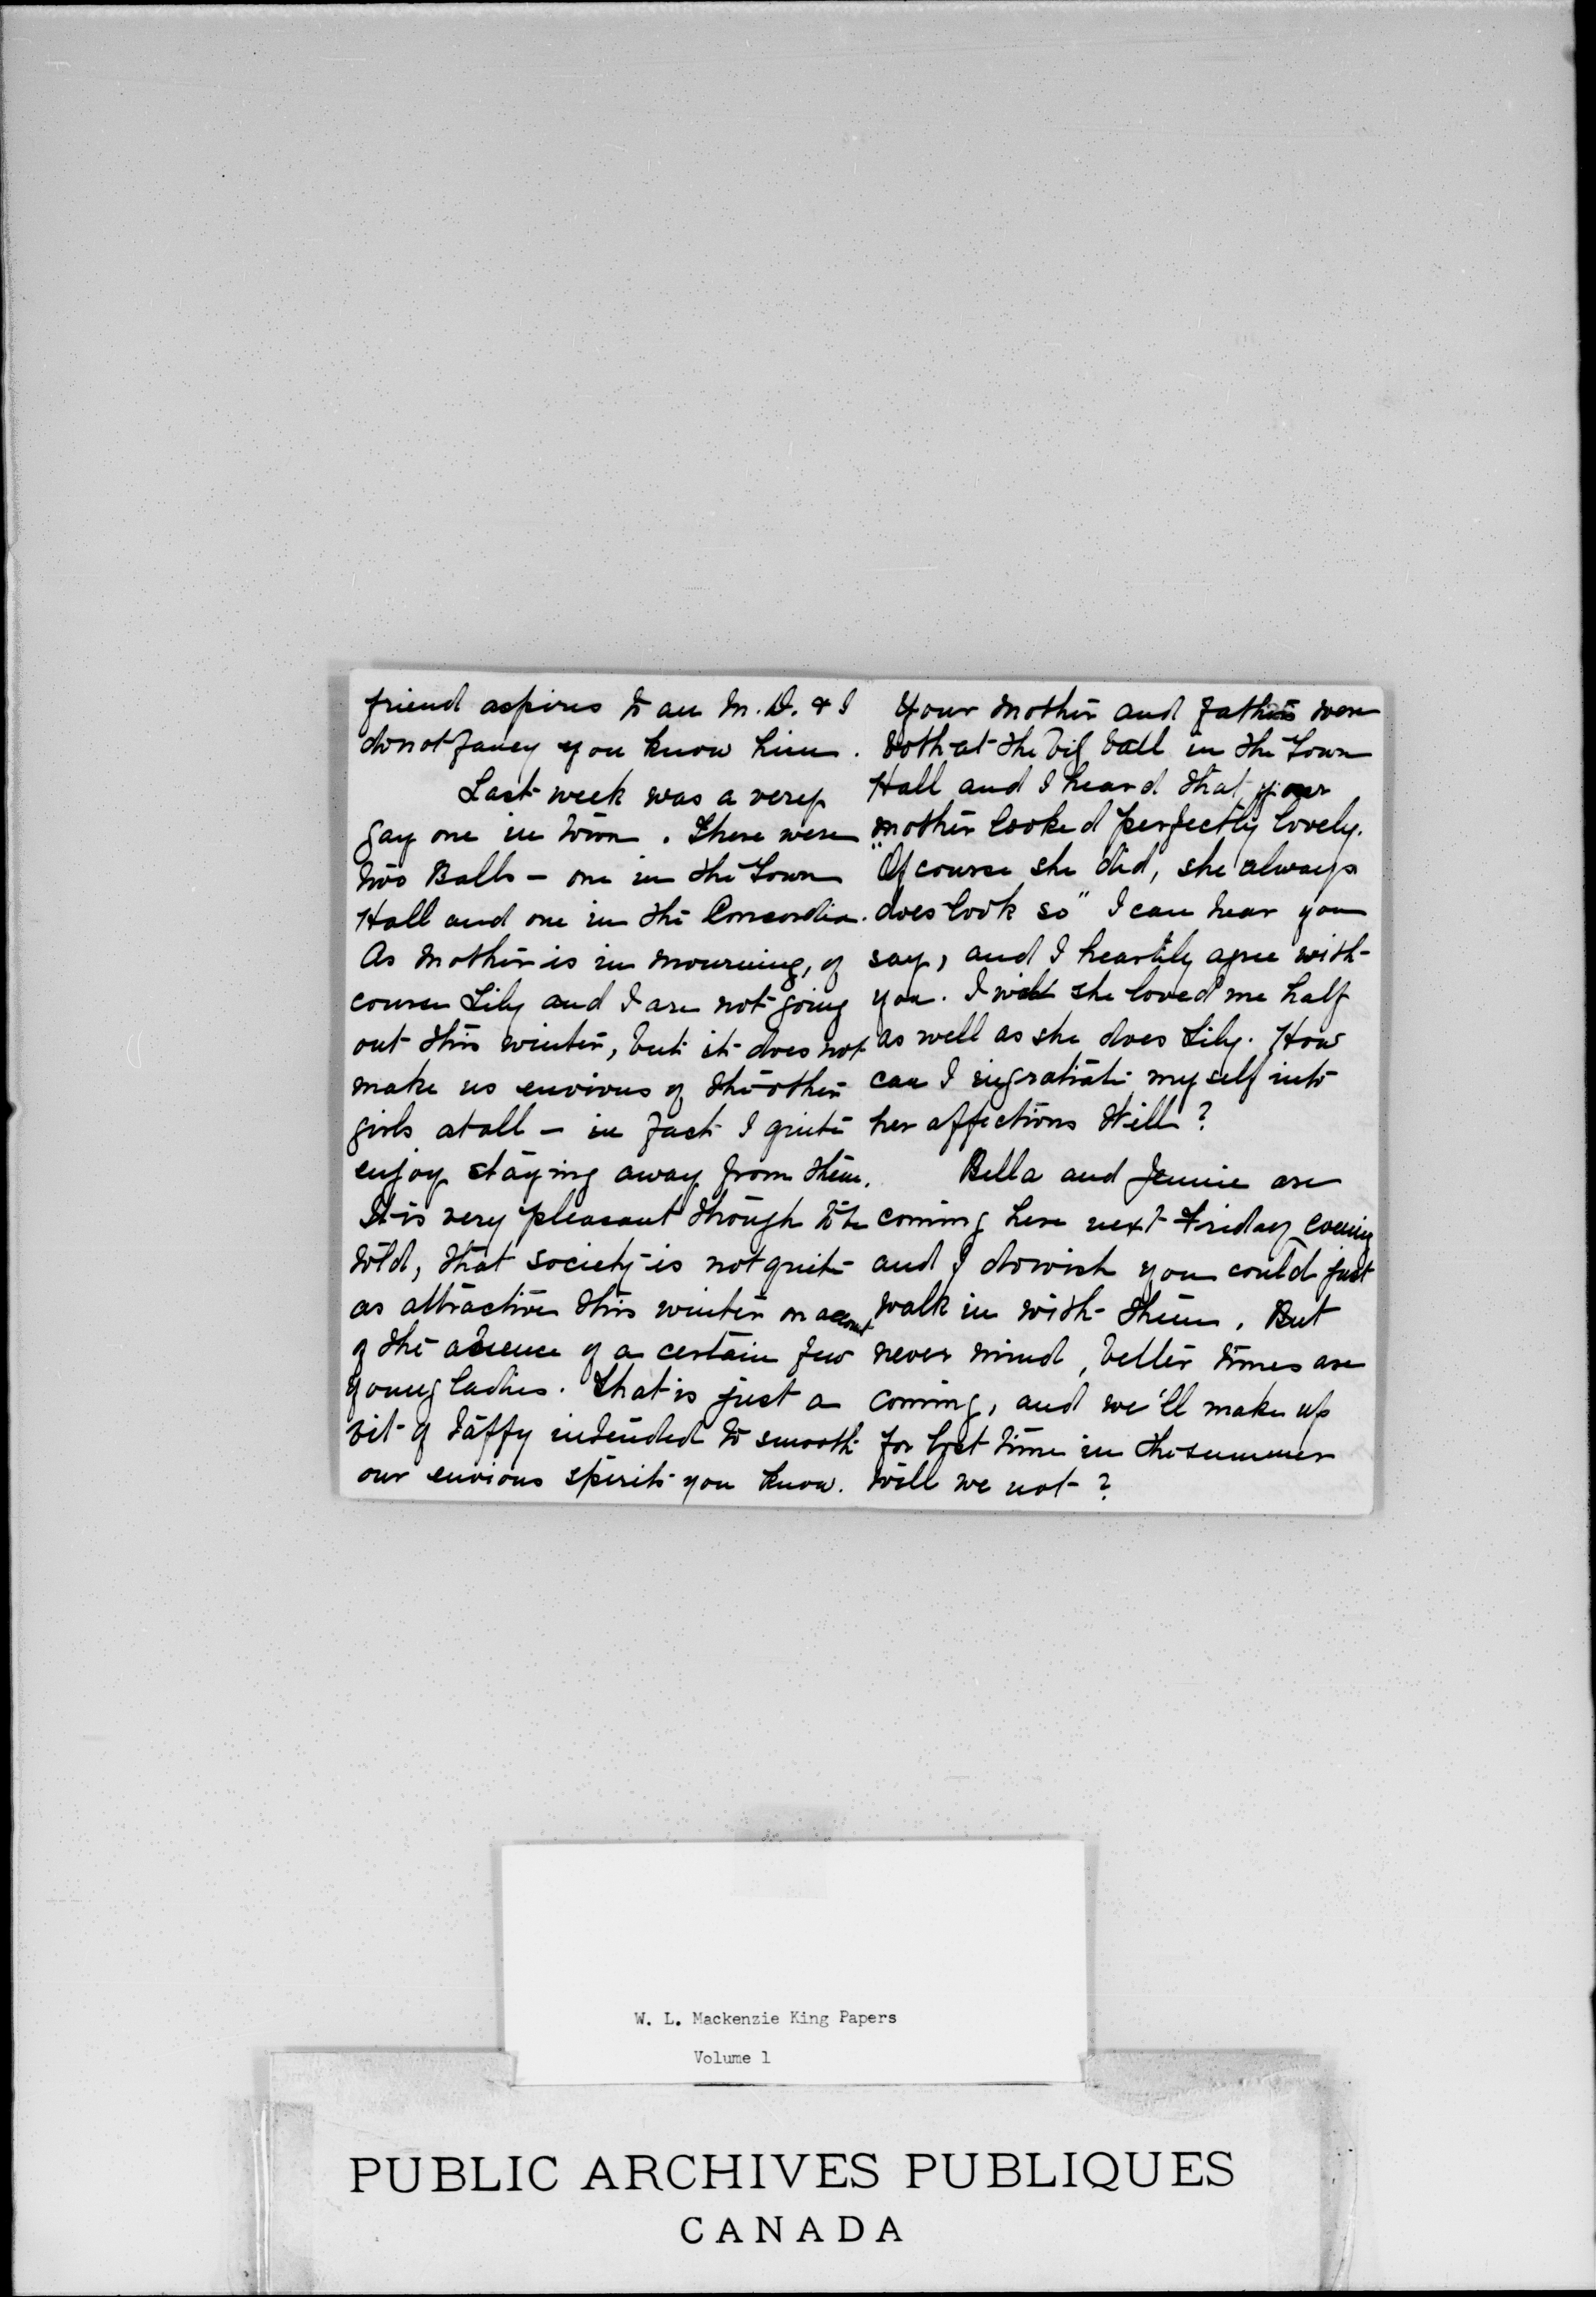 friend aspires to an M.D. & I
do not fancy you know him.
Last week was a very
gay one in town. There were
two Balls - one in the Town
Hall and one in the Concordia.
As Mother is in mourning, of
course Lily and I are not going
out this winter, but it does not
make us envious of the other
girls at all - in fact I quite
enjoy staying away from them.
It is very pleasant though to be
told, that society is not quite
as attractive this winter on account
of the absence of a certain few
young ladies. That is just a
bit of taffy intended to smooth
our envious spirits you know.
Your mother and father were
both at the big ball in the Town
Hall and I heard that your
mother looked perfectly lovely.
"Of course she did, she always
does look so" I can hear you
say, and I heartily agree with
you. I wish she loved me half
as well as she does Lily. How
can I ingratiate myself into
her affections Will?
Bella and Jennie are
coming here next Friday evening
and I do wish you could just
walk in with them. But
never mind, better times are
coming, and we'll make up
for lost time in the summer
will we not?
W. L. Mackenzie King Papers
Volume 1
PUBLIC ARCHIVES PUBLIQUES
CANADA